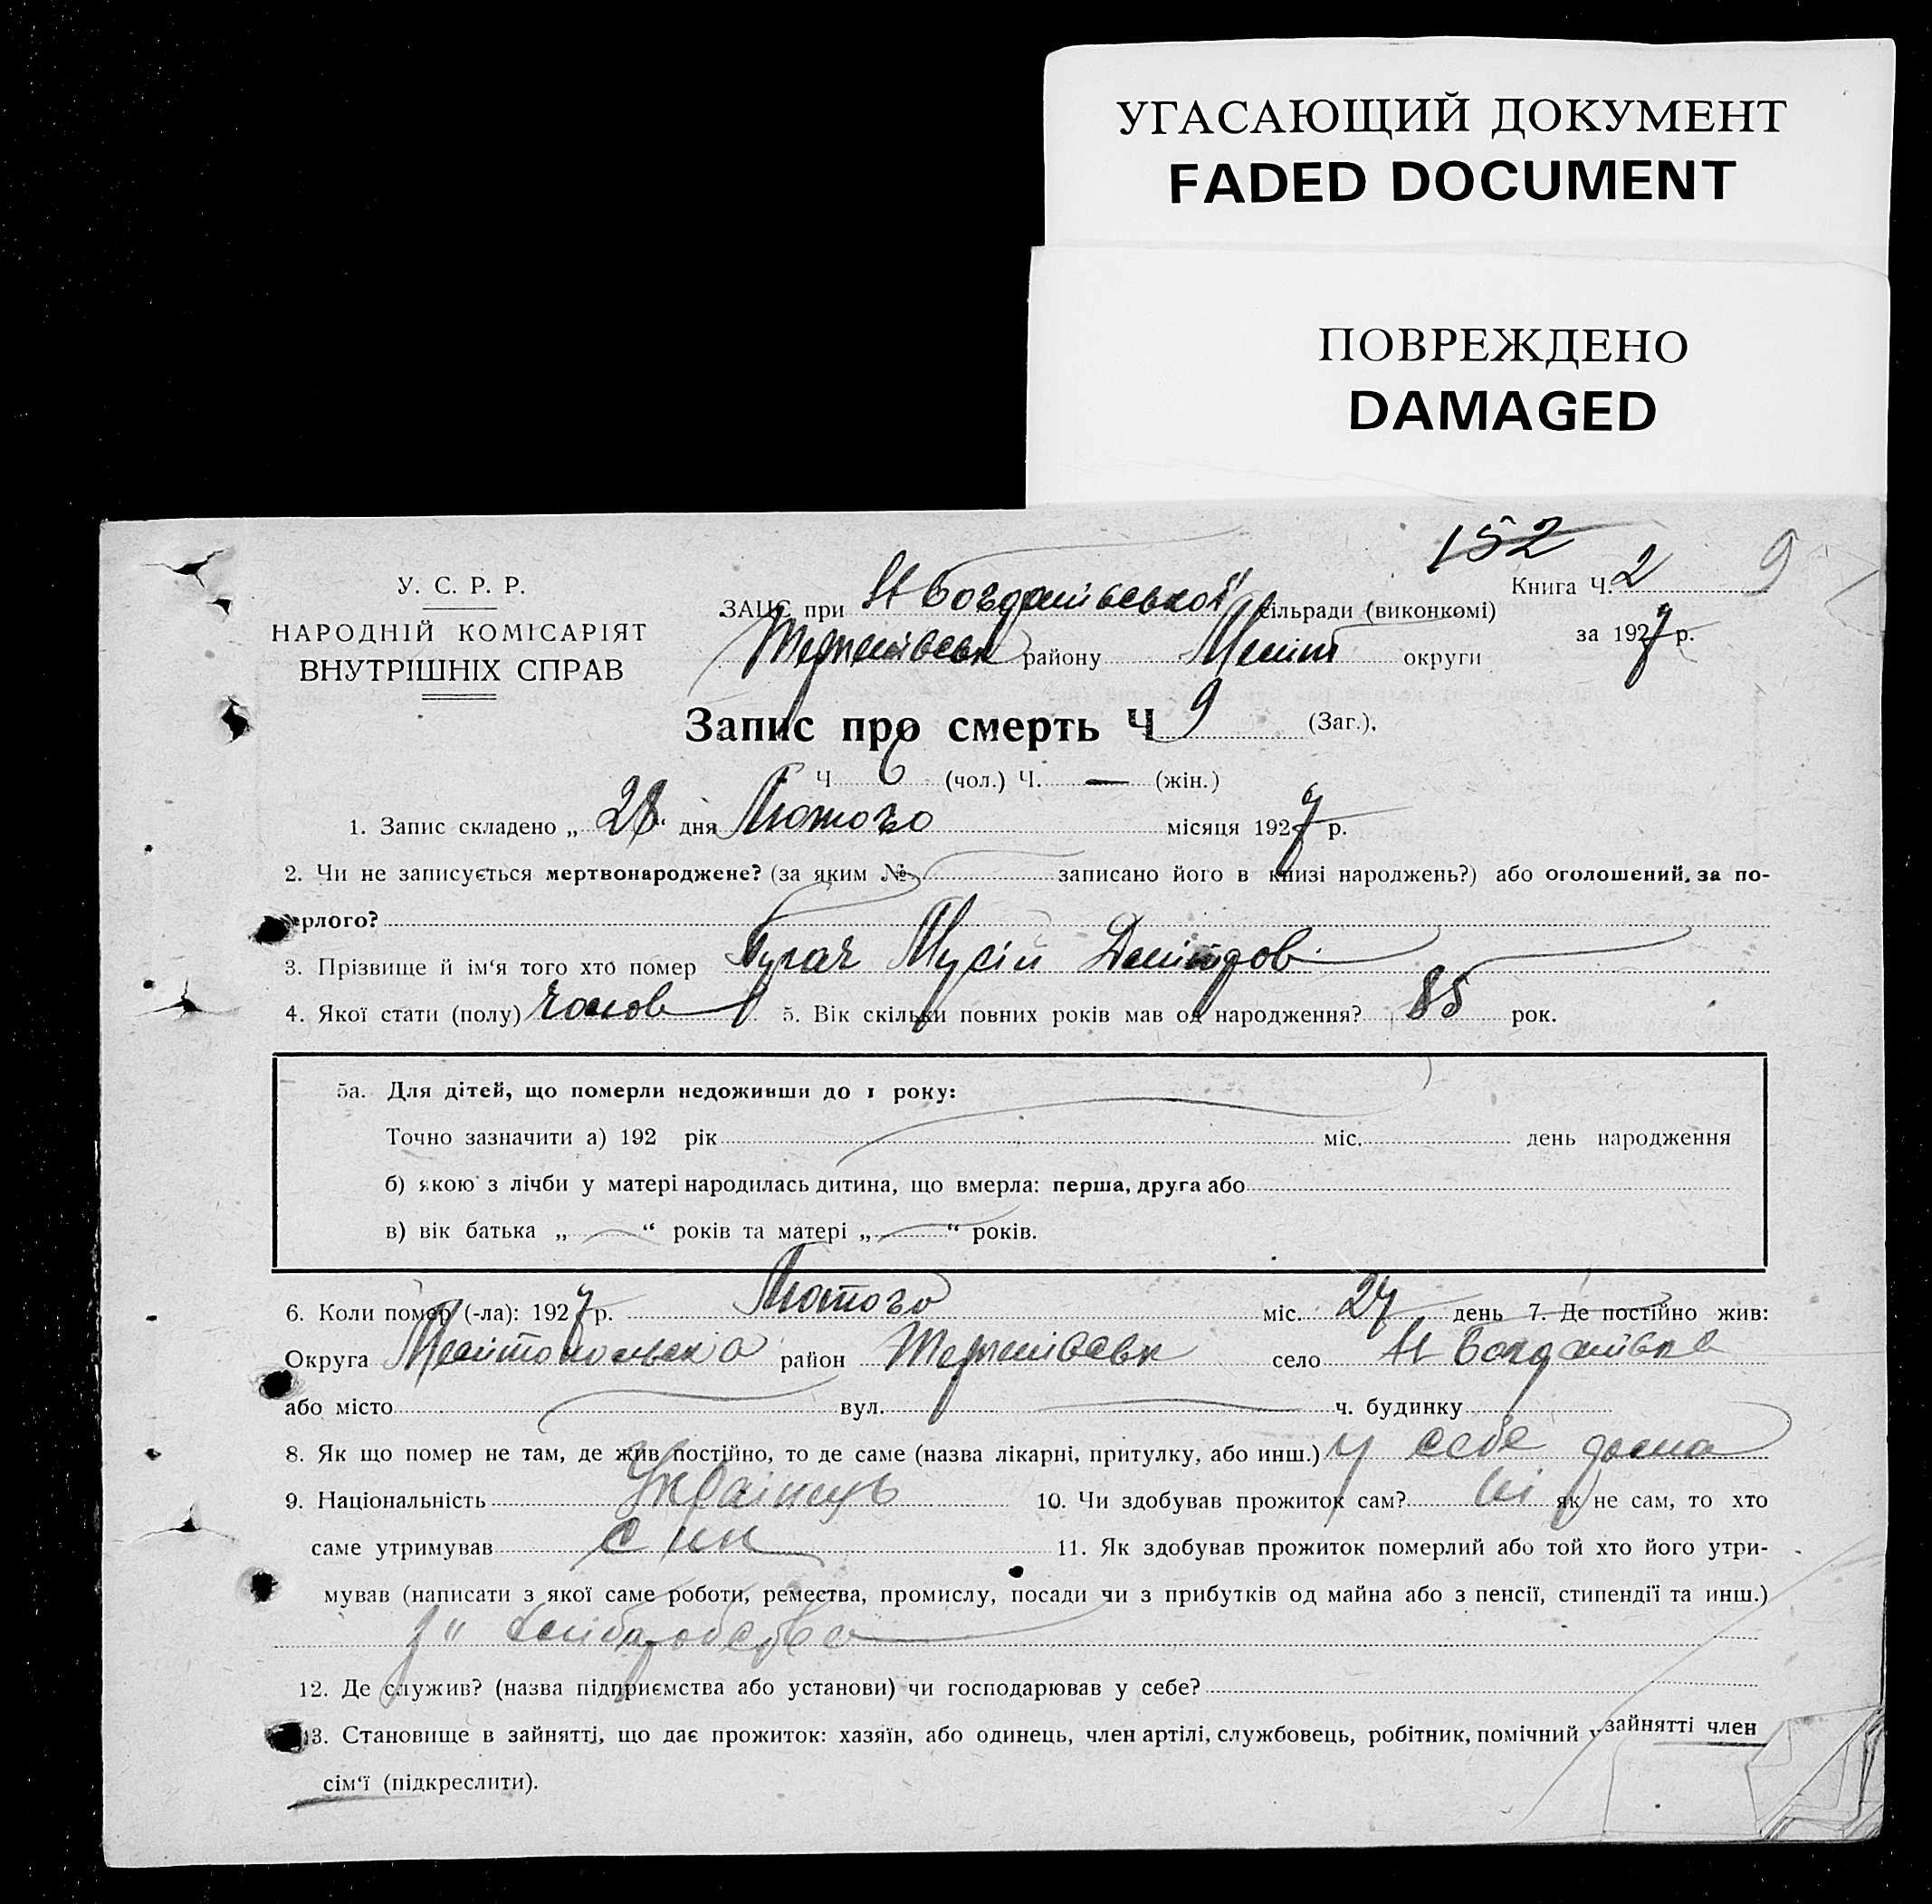 УГАСАЮЩИЙ ДОКУМЕНТ
FADED DOCUMENT
ПОВРЕЖДЕНО
DAMAGED
152
У. С. Р. Р.
НАРОДНІЙ КОМІСАРІЯТ
ВНУТРІШНІХ СПРАВ
ЗАЦС при Н Богданівської сільради (виконкомі)
району Меліт округи
Книга Ч. 2 9
за 1927 р.
Запис про смерть Ч 9 (Заг.).
Ч 6 (чол.) Ч. — (жін.)
1. Запис складено „ 28 “ дня Лютого місяця 1927 р.
2. Чи не записується мертвонароджене? (за яким № записано його в книзі народжень?) або оголошений за по-
мерлого?
3. Прізвище й ім‘я того хто помер Мусій
4. Якої стати (полу) чолов 5. Вік скільки повних років мав од народження? 85 рок.
5а. Для дітей, що померли недоживши до 1 року:
Точно зазначити а) 192 рік міс. день народження
б) якою з лічби у матері народилась дитина, що вмерла: перша, друга або
в) вік батька „ — “ років та матері „ — “ років.
6. Коли помер (-ла): 1927 р. Лютого міс. 27 день 7. Де постійно жив:
Округа Мелітопольська район село Н Богданівка
або місто вул. ч. будинку
8. Як що помер не там, де жив постійно, то де саме (назва лікарні, притулку, або инш.) у себе дома
9. Національність Українець 10. Чи здобував прожиток сам? ні як не сам, то хто
саме утримував син 11. Як здобував прожиток померлий або той хто його утри-
мував (написати з якої саме роботи, ремества, промислу, посади чи з прибутків од майна або з пенсії, стипендії та инш.)
12. Де служив? (назва підприємства або установи) чи господарював у себе?
13. Становище в зайнятті, що дає прожиток: хазяїн, або одинець, член артілі, службовець, робітник, помічний у зайнятті член
сім‘ї (підкреслити).